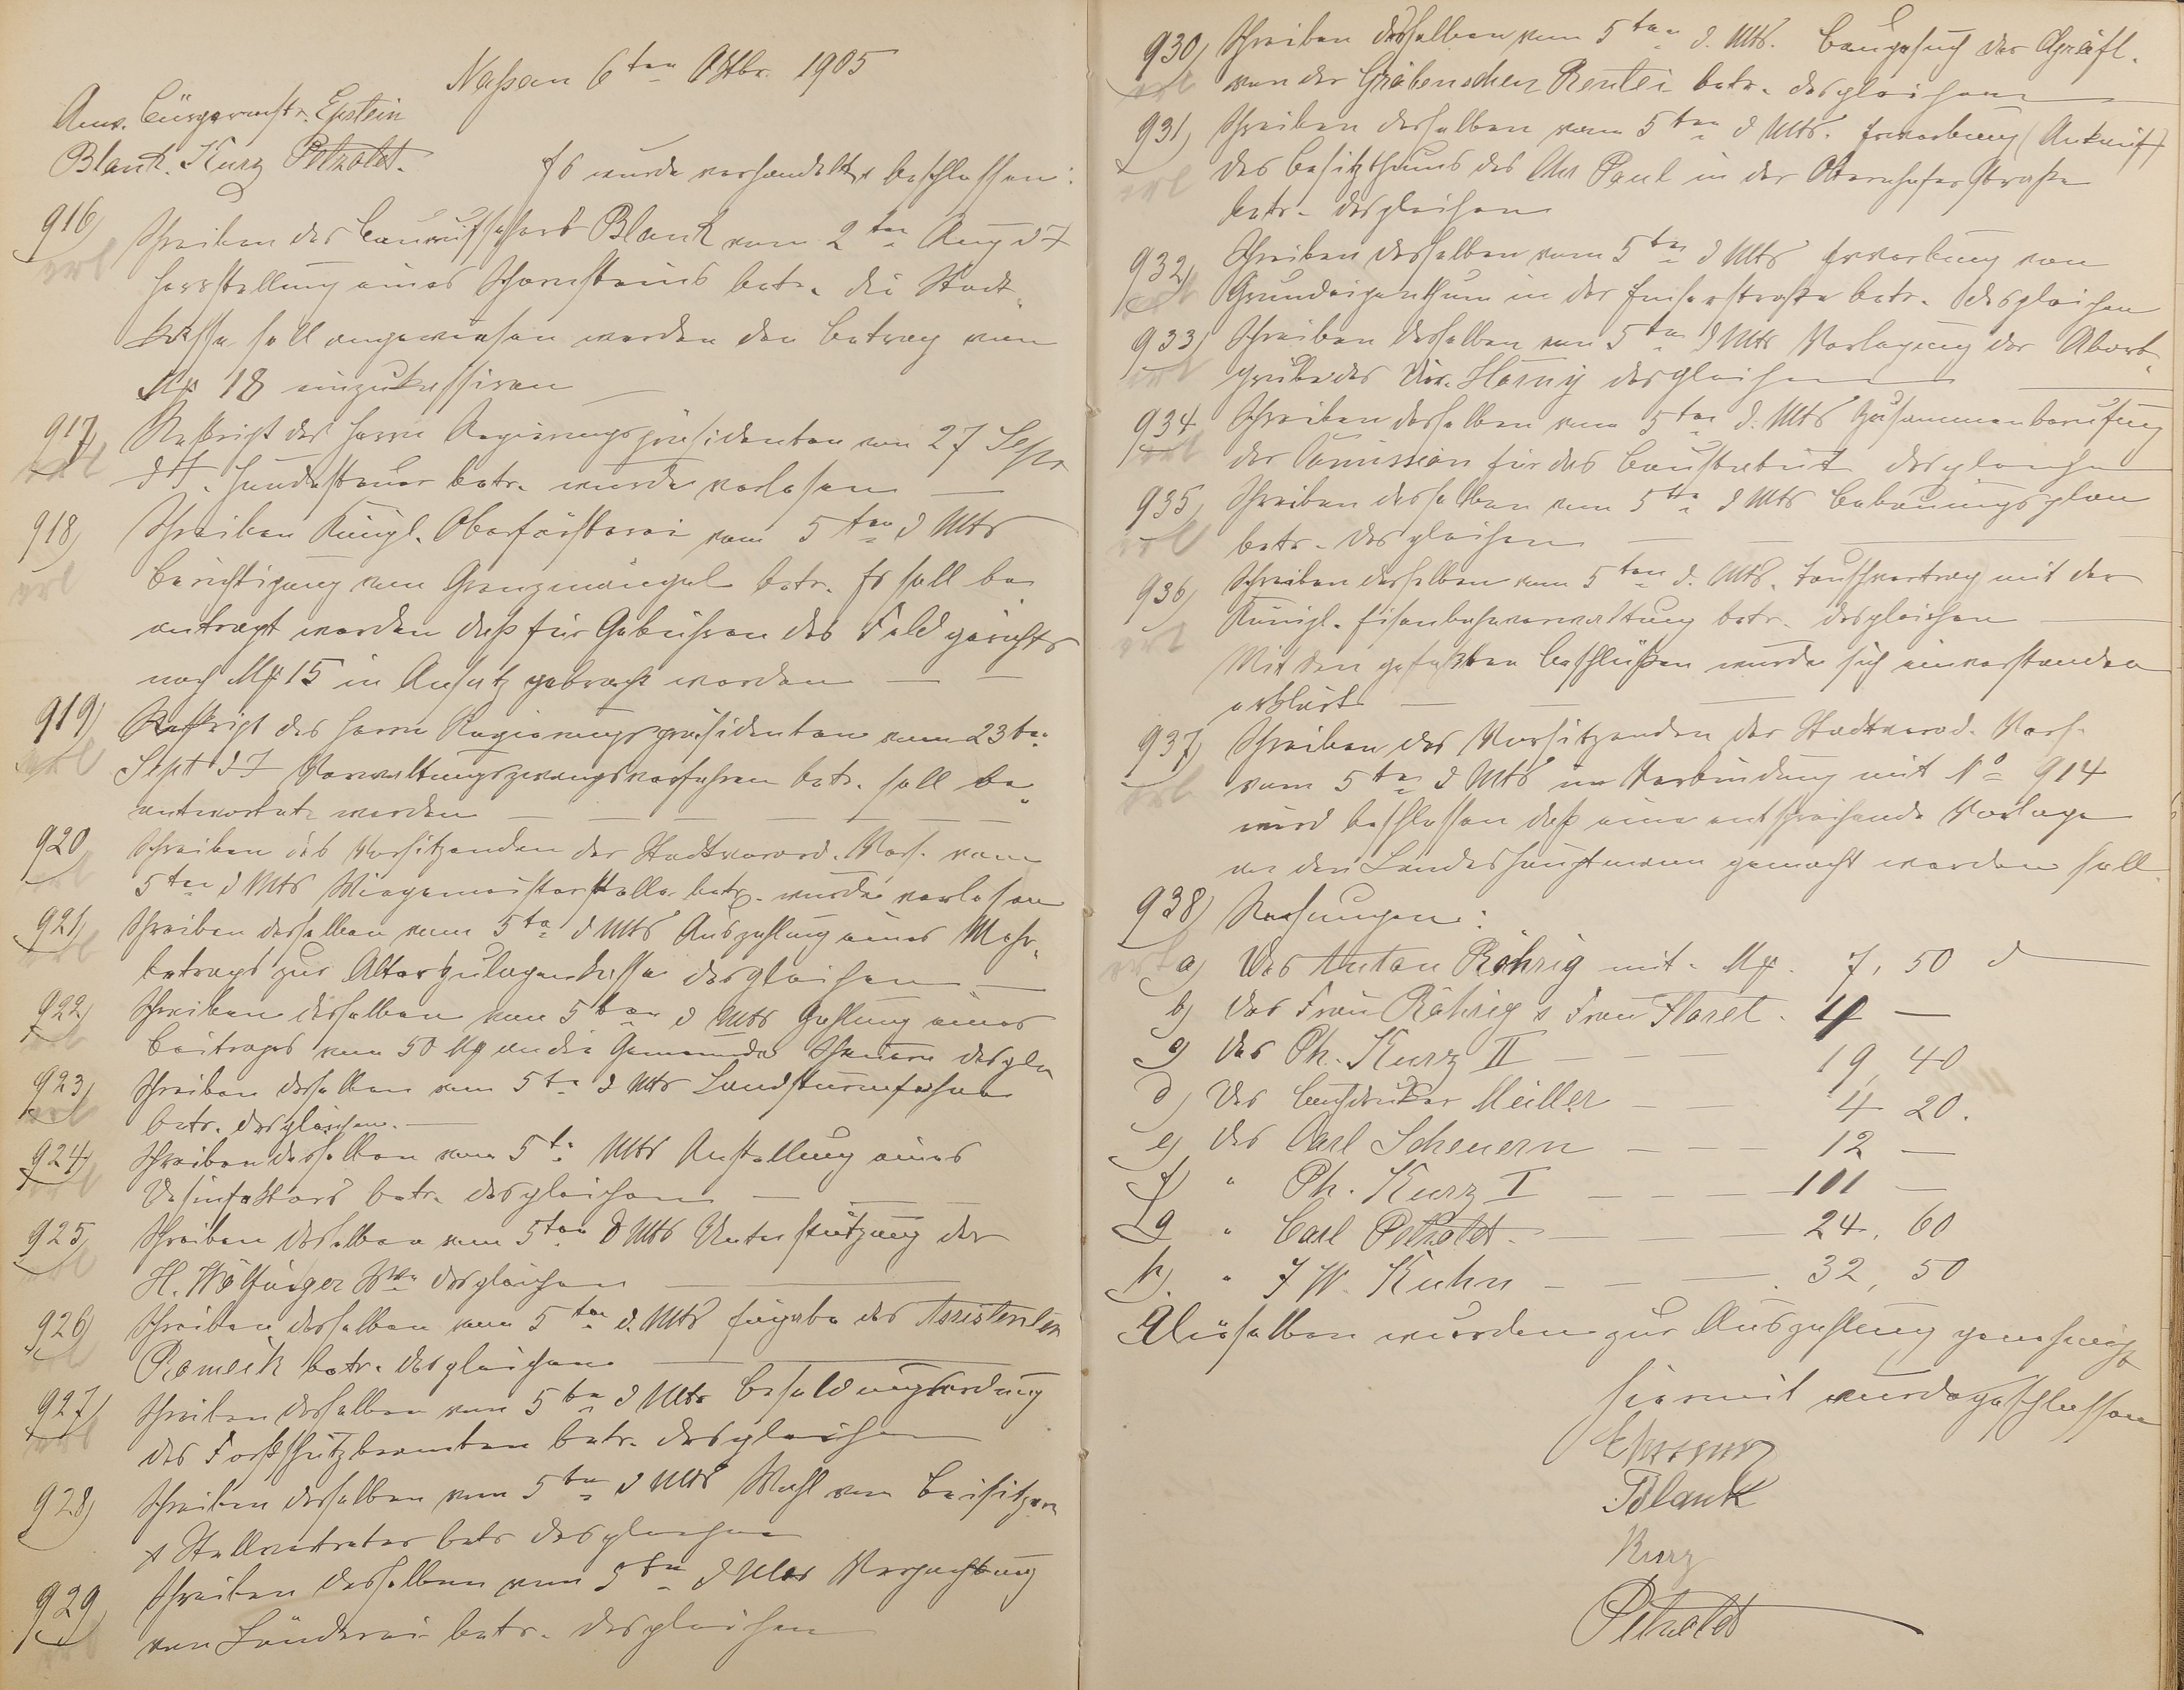 Nassau 6ten Oktbr. 1905
Anw. Bürgermstr. Epstein
Blank. Kurz Petzoldt.
Es wurde verhandelt & beschlossen:
916) Schreiben des Bauaufsehers Blank vom 2ten Aug d J
erl
Herstellung eines Schornsteins betr. die Stadt-
kasse soll angewiesen werden den Betrag von
Mk 18 einzukassiren
917) Reskript des Herrn Regierungspräsidenten vom 27 Sept
erl
d J. Hundesteuer betr. wurde verlesen
918) Schreiben Königl. Oberförsterei vom 5ten d Mts
erl
Berichtigung von Grenzmängel betr. Es soll be-
antragt werden daß für Gebühren des Feldgerichts
noch Mk 15 in Ansatz gebracht werden
919) Reskript des Herrn Regierungspräsidenten vom 23ten
erl
Sept d J Verwaltungszwangsverfahren betr. soll be-
antwortet werden
920) Schreiben des Vorsitzenden der Stadtverord. Vers. vom
erl
5ten d Mts Wiegemeisterstelle betr. wurde verlesen
921) Schreiben desselben vom 5ten d Mts Auszahlung eines Mehr-
erl
betrags zur Alterszulagenkasse desgleichen
922) Schreiben desselben vom 5ten d Mts Zahlung eines
erl
Beitrages von 50 Mk an die Gemeinde Scheuern desgl
923) Schreiben desselben vom 5ten d Mts
erl
betr. desgleichen.
924) Schreiben desselben vom 5ten Mts Anstellung eines
erl
Desinfektors betr. desgleichen
925) Schreiben desselben vom 5ten d Mts Unterstützung der
erl
H. Wwe desgleichen
926) Schreiben desselben vom 5ten d. Mts Eingabe des Assistenten
erl
betr. desgleichen
927) Schreiben desselben vom 5ten d Mts Besoldungsordnung
erl
des Forstschutzbeamten betr. desgleichen
928) Schreiben desselben vom 5ten d Mts Wahl von Beisitzern
& Stellvertreter betr desgleichen
929) Schreiben desselben vom 5ten d Mts Verpachtung
erl
von Länderei betr. desgleichen
930) Schreiben desselben vom 5ten d. Mts. Baugesuch der Gräfl.
erl
von der Gröbenschen Rentei betr. desgleichen
931) Schreiben desselben vom 5ten d Mts. Erwerbung (Ankauf)
erl
des Besitzthums des Chr Paul in der Obernhoferstraße
betr. desgleichen
932) Schreiben desselben vom 5ten d Mts Erwerbung von
erl
Grundeigenthum in der Emserstraße betr. desgleichen
933) Schreiben desselben vom 5ten d Mts Verlegung der Abort-
erl
grube des Chr. desgleichen
934) Schreiben desselben vom 5ten d. Mts Zusammenberufung
erl
der Comission für das Baustatut desgleichen
935) Schreiben desselben vom 5ten d Mts Bebauungsplan
erl
betr. desgleichen
936) Schreiben desselben vom 5ten d. Mts. Tauschvertrag mit der
erl
Königl. Eisenbahnverwaltung betr. desgleichen
Mit den gefaßten Beschlüßen wurde sich einverstanden
erklärt
937) Schreiben des Vorsitzenden der Stadtverord. Vers.
erl
vom 5ten d Mts in Verbindung mit No 914
wird beschlossen daß eine entsprechende Vorlage
an den Landeshauptmann gemacht werden soll
938) Rechnungen:
erl a) Des Anton Röhrig mit. Mk. 7, 50 d
b) der Frau Röhrig & Frau Floret. 4 —
c) des Ph. Kurz II — — 19, 40
d) Des Buchdrucker Müller — — 4 20.
e) des Carl Scheuern — — — 12 —
f) " Ph. Kurz I — — — 101 —
g " Carl Petzoldt. — — — 24, 60
h). " J W. Kuhn — — — 32, 50
Dieselben wurden zur Auszahlung genehmigt
Hiermit wurde geschlossen
Blank
Kurz
Petzoldt